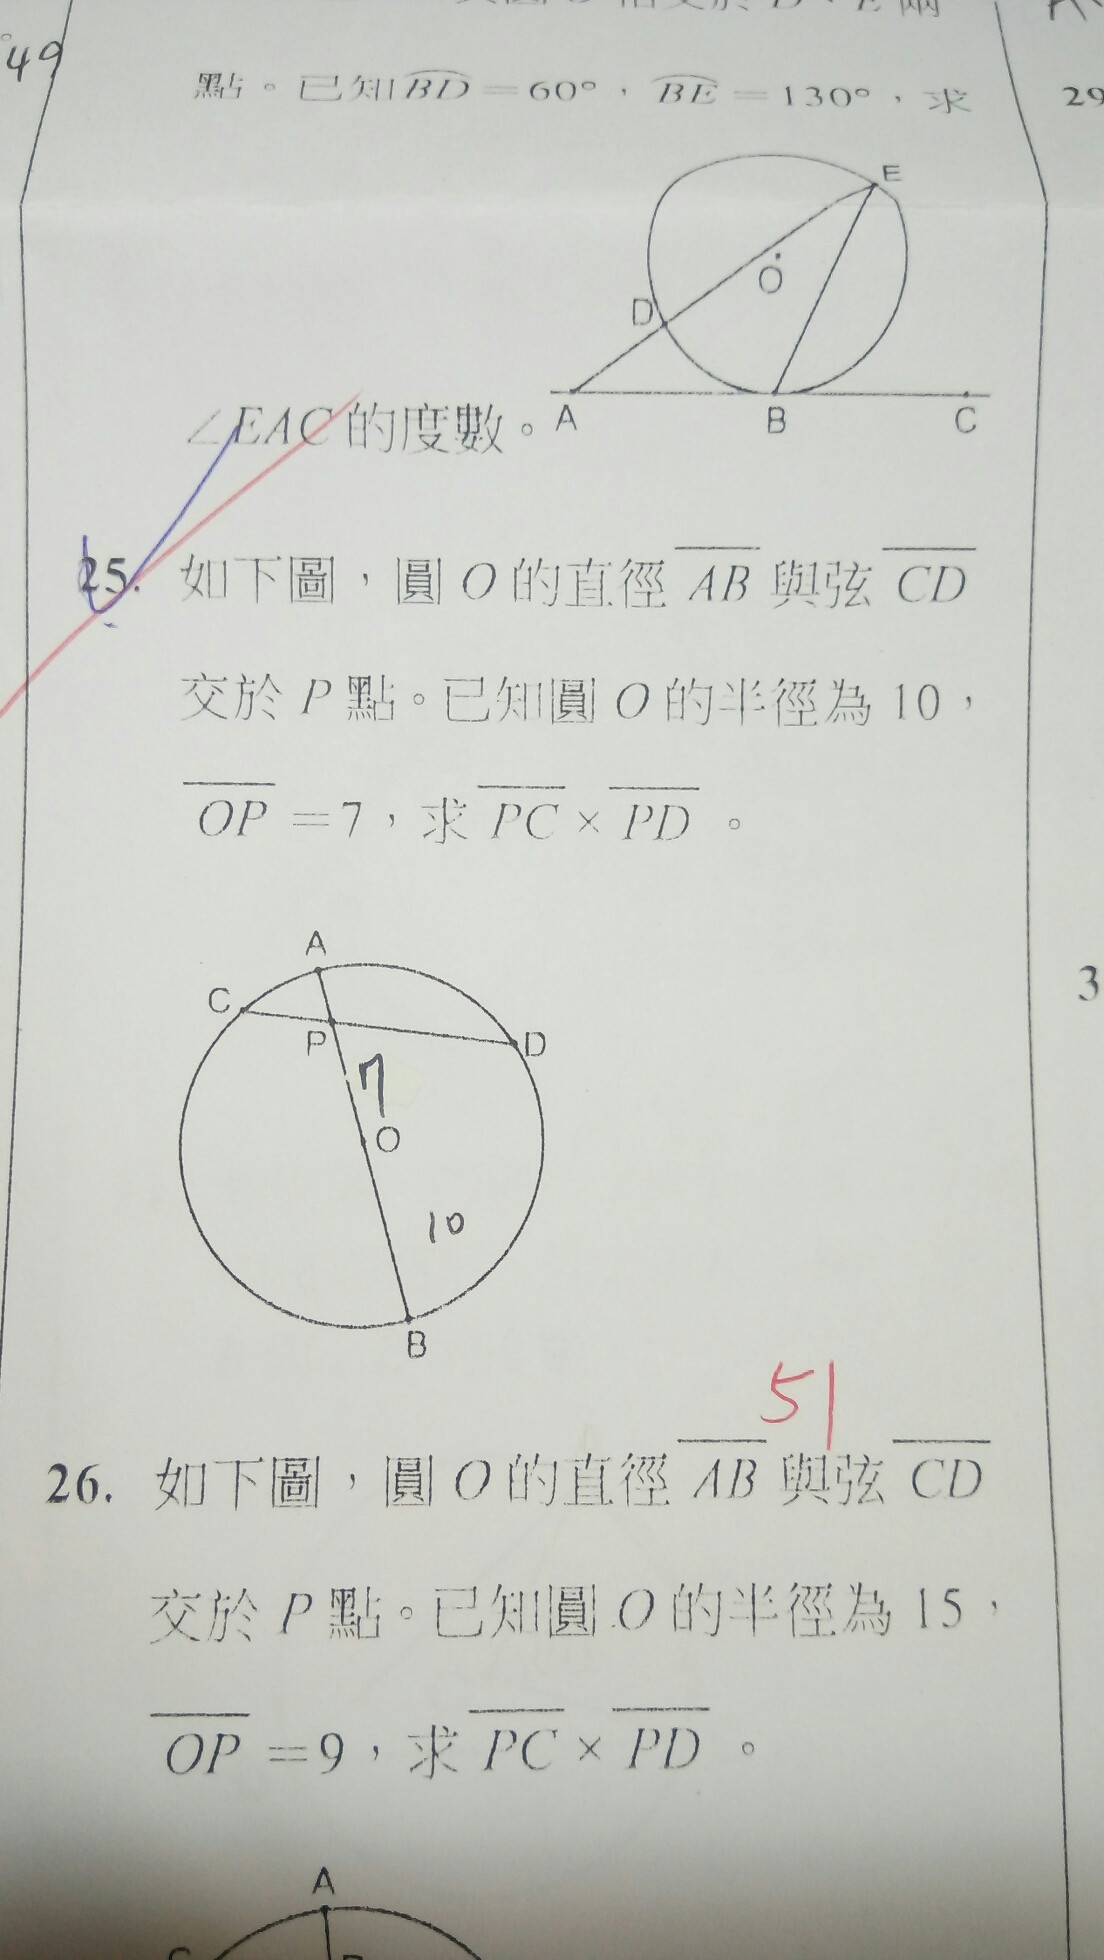 49
點。已知BD=60°，BE=130°，求
29
E
O
D
A
B
C
∠EAC的度數。
25. 如下圖，圓O的直徑AB與弦CD
交於P點。已知圓O的半徑為10，
OP=7，求PC×PD。
A
C
P
D
7
O
10
B
3
51
26. 如下圖，圓O的直徑AB與弦CD
交於P點。已知圓O的半徑為15，
OP=9，求PC×PD。
A